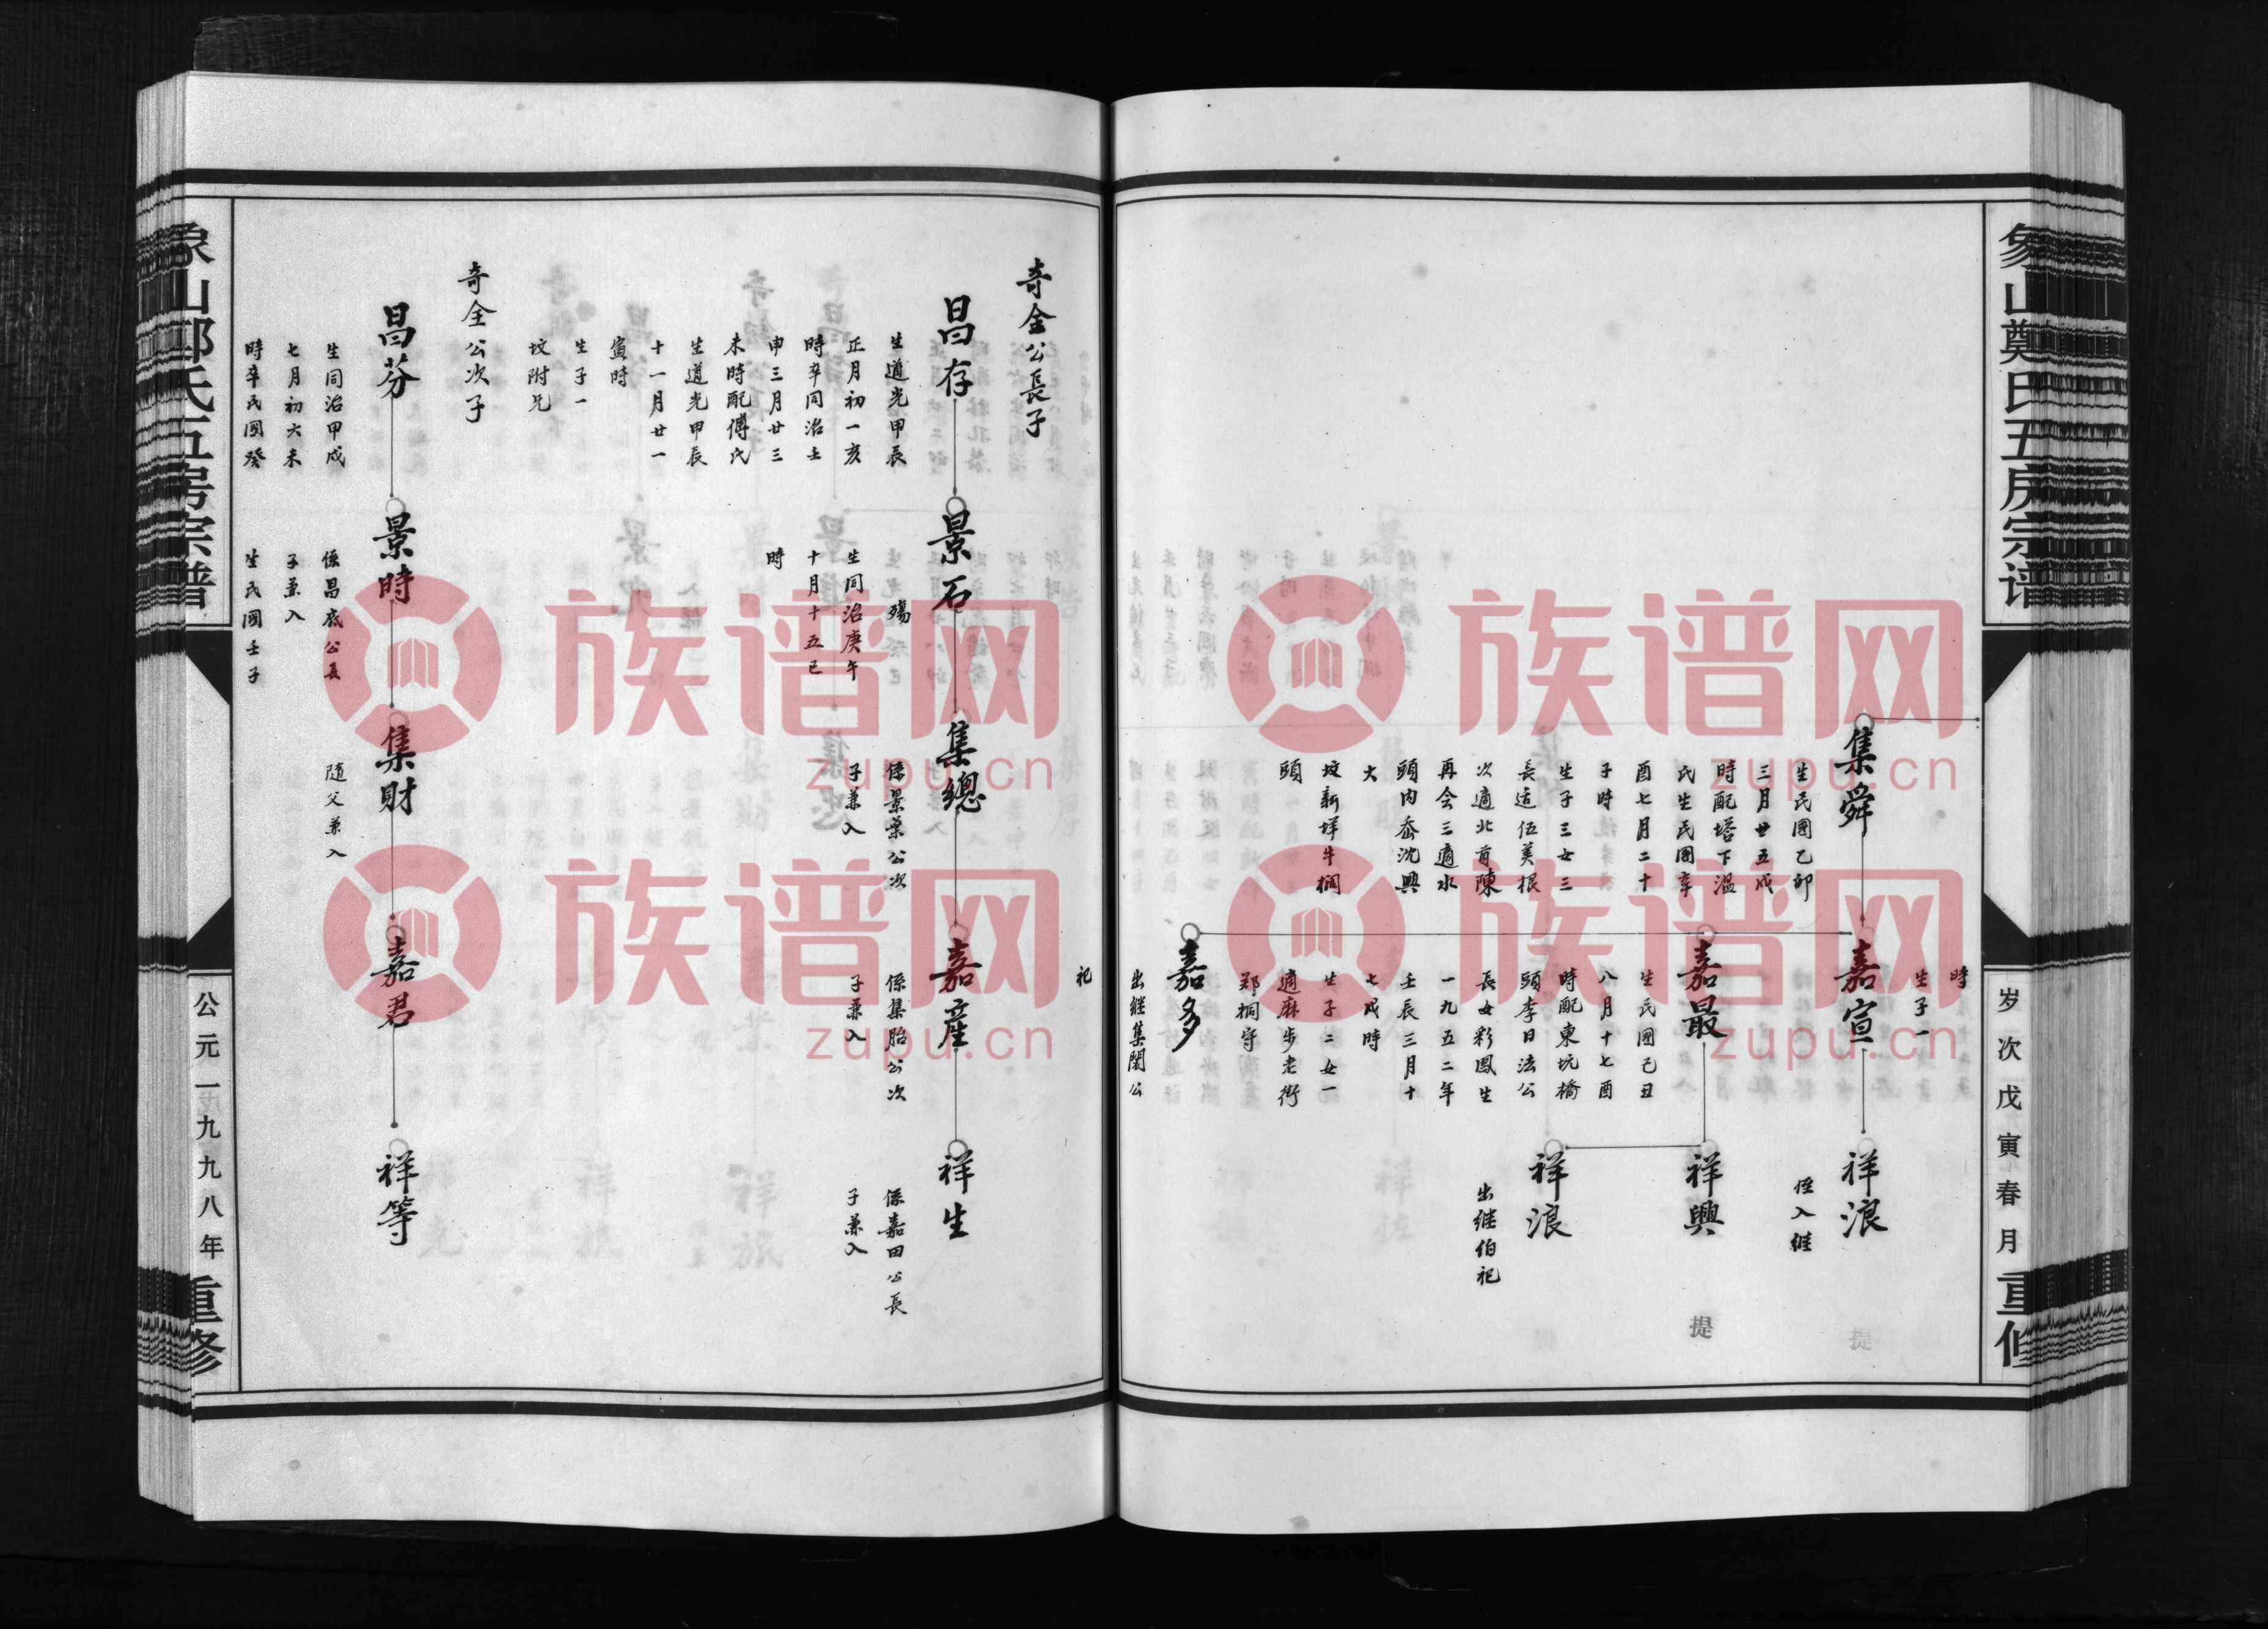 象山鄭氏五房宗谱
岁次戊寅春月
重修
時
生子一
集舜
生民國乙卯
三月廿五戌
時配塔下溫
氏生民國辛
酉七月二十
子時
生子三女三
長适伍美根
次適北首陳
再会三適水
頭内岙沈興
大
坟新垟牛欄
頭
嘉宣
祥浪
侄入继
嘉最
生民國己丑
八月十七酉
時配東坑橋
頭李日法公
長女彩鳳生
一九五二年
壬辰三月十
七戌時
生子二女一
適麻步老街
郑桐守
祥興
提
提
祥浪
出继伯祀
嘉多
出继集闊公
祀
奇全公長子
昌存
生道光甲辰
正月初一亥
時卒同治壬
申三月廿三
未時配傅氏
生道光甲辰
十一月廿一
寅時
生子一
坟附兄
景石
殤
生同治庚午
十月十五巳
時
集總
係景葉公次
子兼入
嘉産
係集胎公次
子兼入
祥生
係嘉田公長
子兼入
奇全公次子
昌芬
生同治甲戌
七月初六未
時卒民國癸
景時
係昌底公長
子兼入
生民國壬子
集財
隨父兼入
嘉君
祥等
公元一九九八年
重修
族谱网
zupu.cn
族谱网
zupu.cn
族谱网
zupu.cn
族谱网
zupu.cn